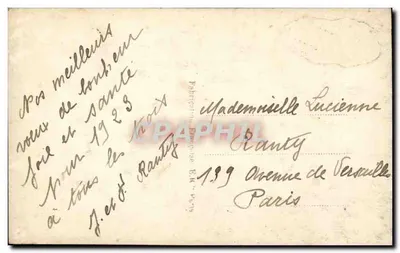 Nos meilleurs
voeux de bonheur
joie et santé
pour 1923
à tous les trois
J. et J. Ranty
Mademoiselle Lucienne
Ranty
139 Avenue de Versailles
Paris
CPAPHIL